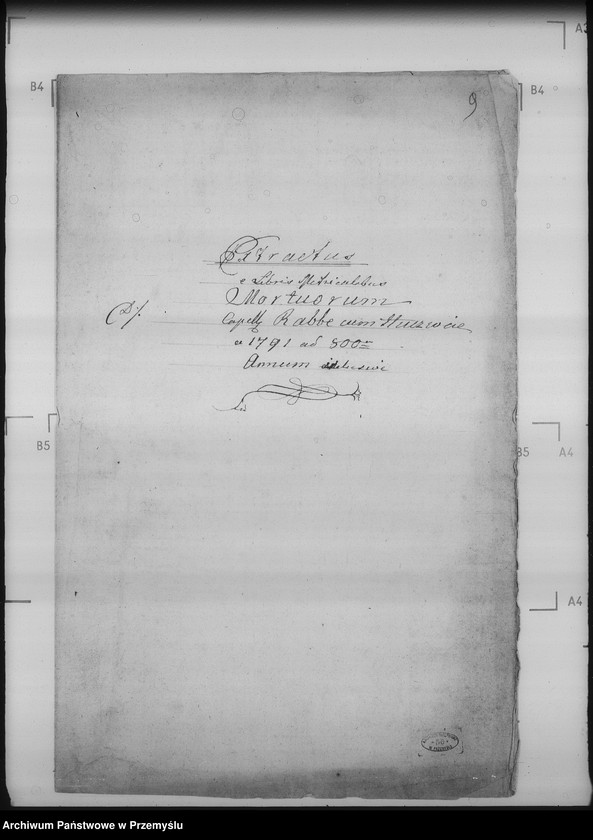 9
Extractus
e Libris Metricalibus
Mortuorum
D/.
Capellj Rabbe cum Huczwice
a 1791 ad 800
Annum inclusive
B4
B4
B5
B5
A4
A4
A3
50
Archiwum Państwowe w Przemyślu